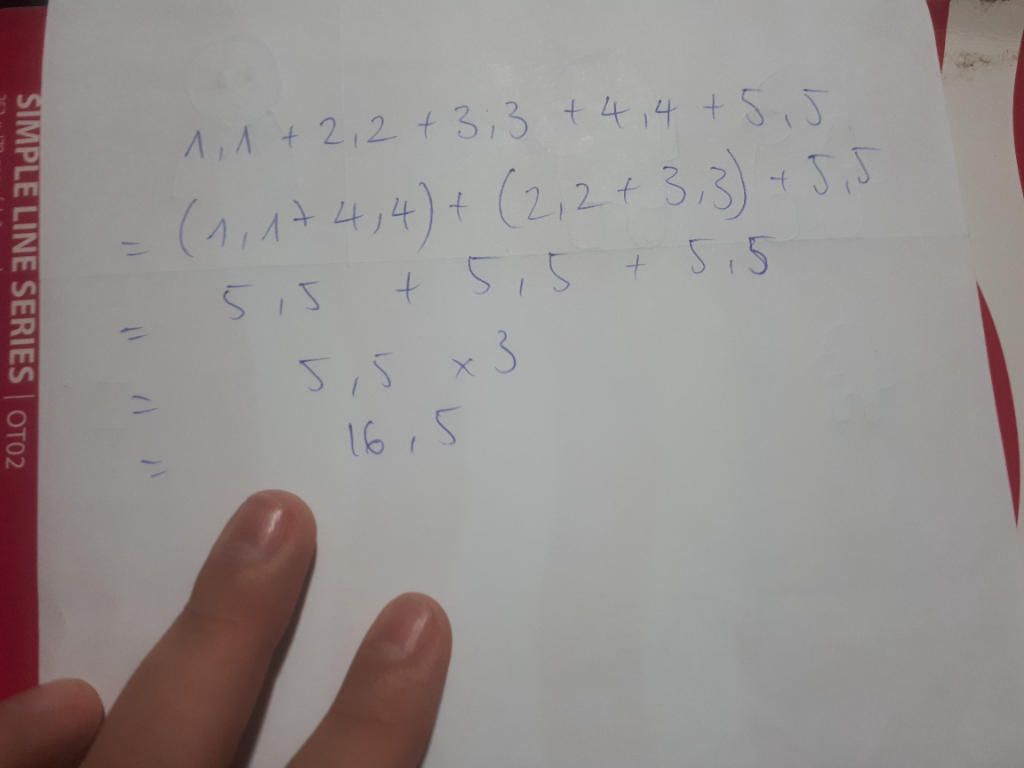 1,1 + 2,2 + 3,3 + 4,4 + 5,5
= (1,1+ 4,4) + (2,2 + 3,3) + 5,5
= 5,5 + 5,5 + 5,5
= 5,5 × 3
= 16,5
SIMPLE LINE SERIES | OT02